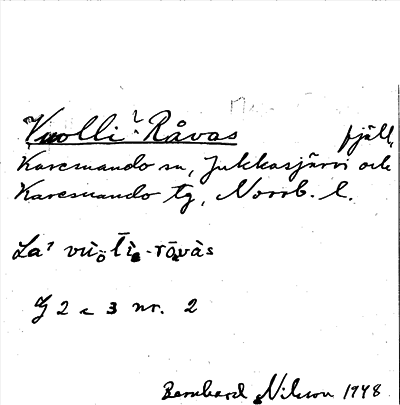 Vuolli-Råvas fjäll,
Karesuando sn, Jukkasjärvi och
Karesuando tg, Norrb. l.
La'
J 2 c 3 nr. 2
Bernhard Nilsson 1948